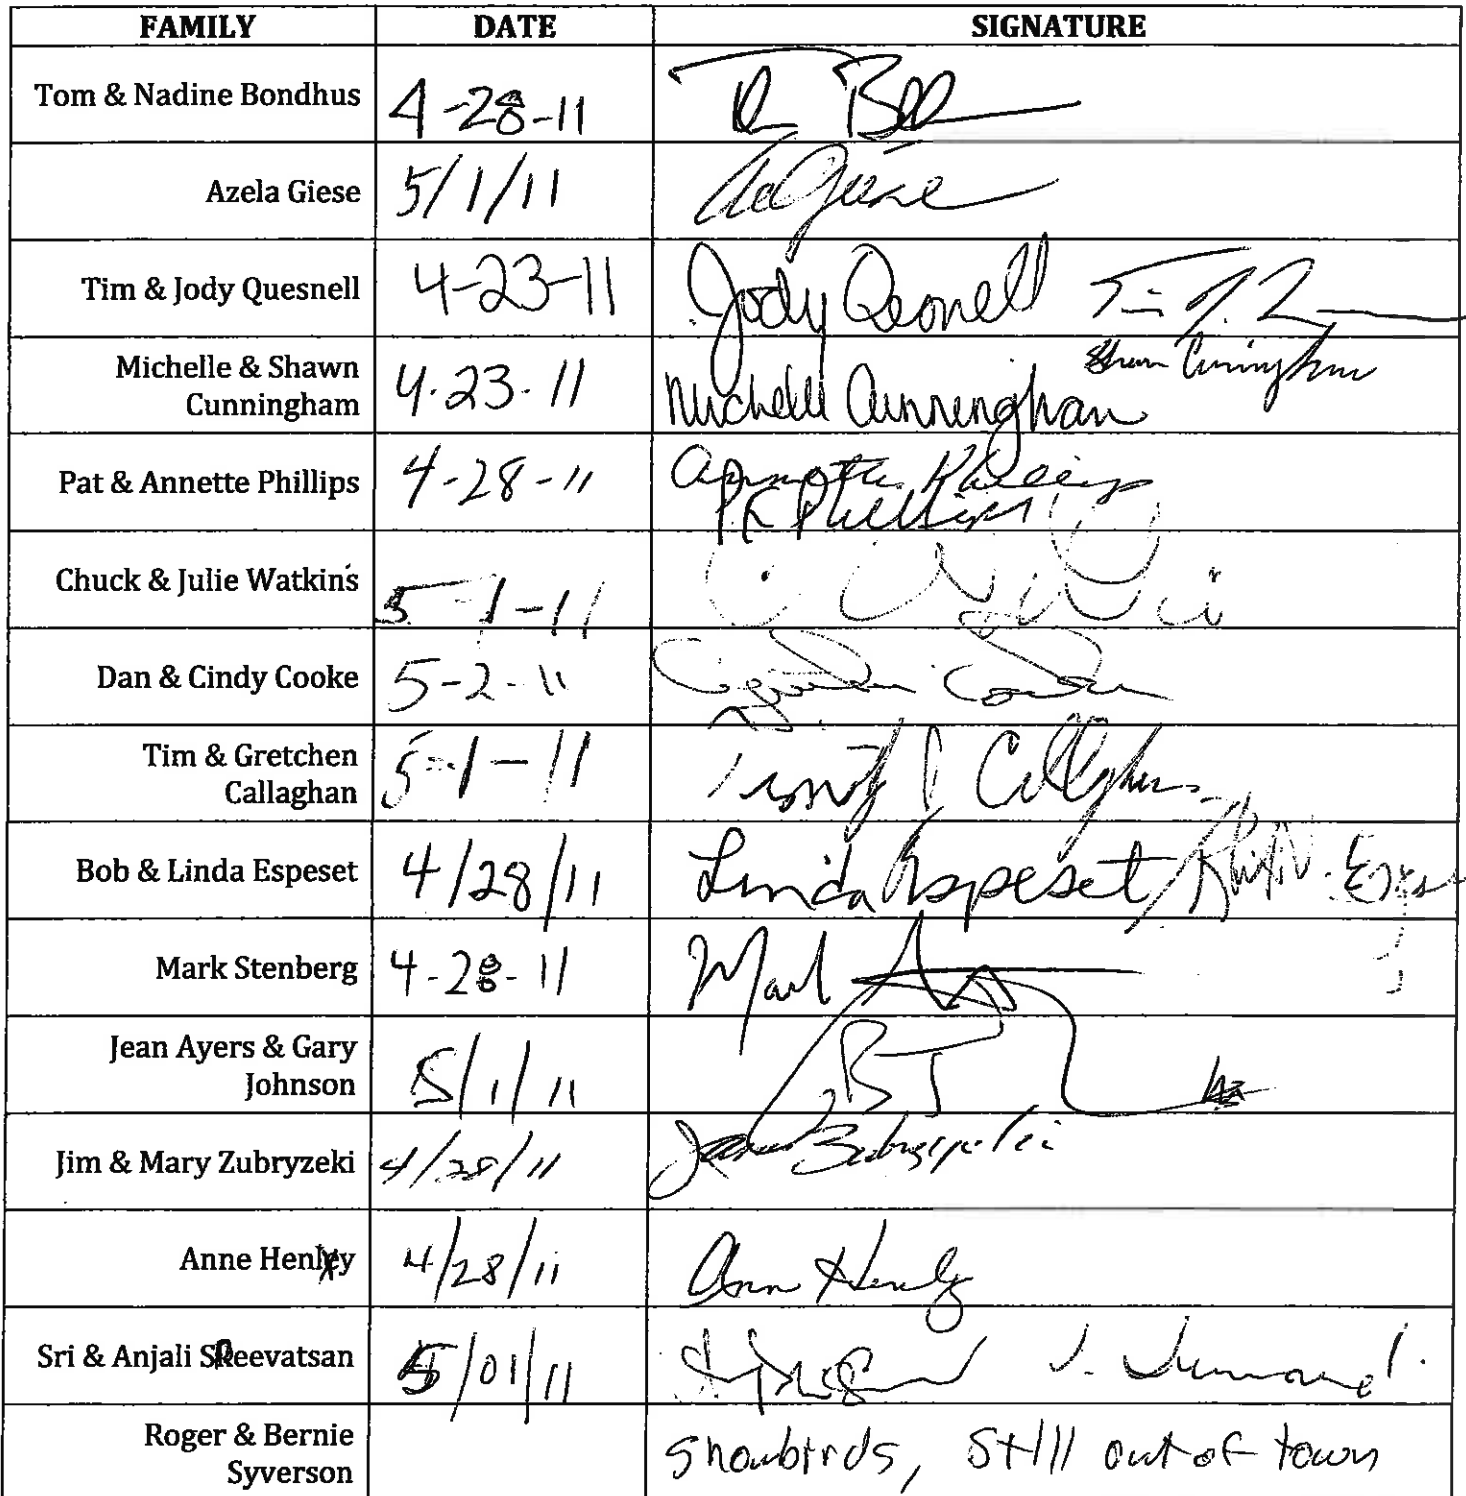 FAMILY DATE SIGNATURE
Tom & Nadine Bondhus 4-28-11
Azela Giese 5/1/11
Tim & Jody Quesnell 4-23-11 Jody Qesnell
Michelle & Shawn
Cunningham 4.23.11 Shawn Cunningham
Michelle Cunningham
Pat & Annette Phillips 4-28-11 Annette Phillips
Phillips
Chuck & Julie Watkins 5-1-11
Dan & Cindy Cooke 5-2-11
Tim & Gretchen
Callaghan 5-1-11 Callaghan
Bob & Linda Espeset 4/28/11 Linda Espeset
Mark Stenberg 4-28-11 Mark
Jean Ayers & Gary
Johnson 5/1/11
Jim & Mary Zubryzeki 4/28/11
Anne Henley 4/28/11 Ann Henly
Sri & Anjali SReevatsan 5/01/11
Roger & Bernie
Syverson snowbirds, still out of town